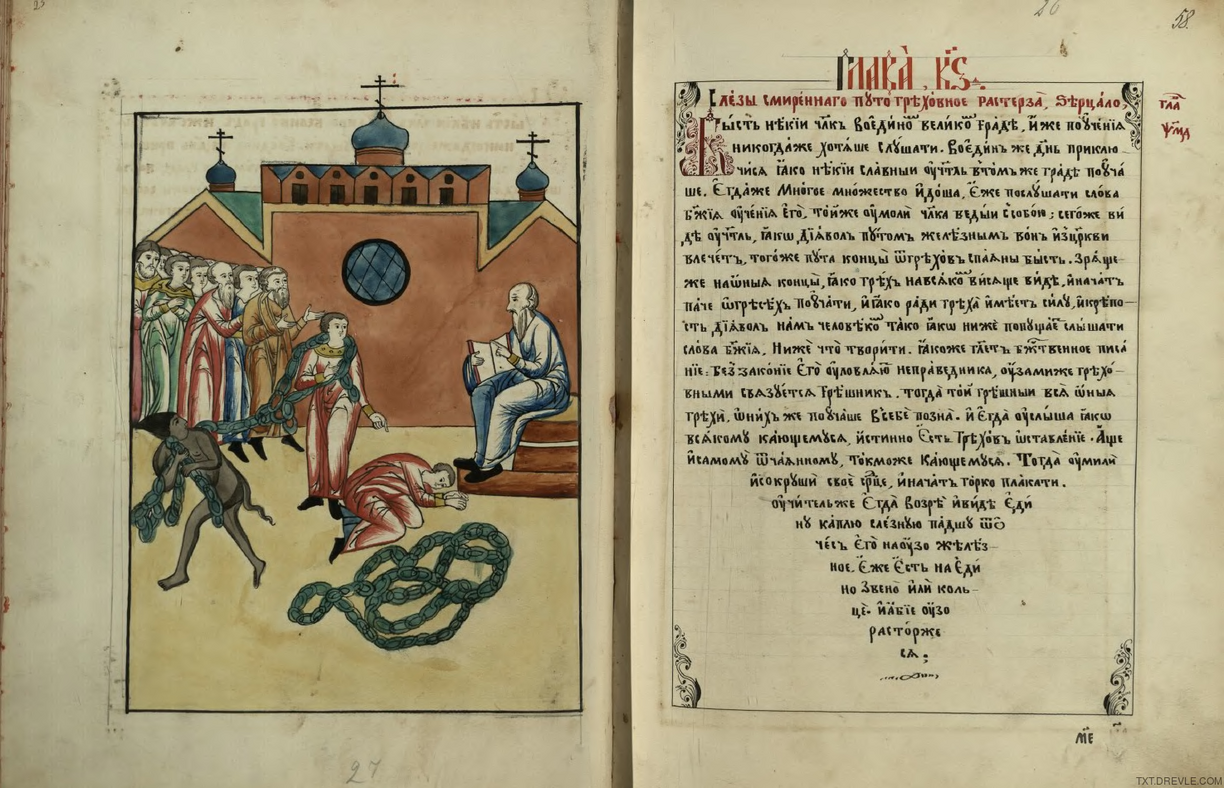 27
58.
Глава̀, к҃ѕ.
Сле́зы смире́ннаго пꙋто̀ грѣхо́вное растерза̀, Ѕе́рцало,
гла̀
Бы́сть нѣ́кїи чл҃къ во є҆ди́но вели́ко гра́дѣ, и҆́же поꙋче́нїѧ
ѱ҃мд
никогда́же хотѧ́ше слꙋшати. Во є҆ди́нъ же дн҃ь приклю
чи́сѧ ꙗ҆́ко нѣ́кїи сла́вныи ᲂу҆чт҃ль в то́мъ же гра́дѣ поꙋча́
ше. Є҆гда́же мно́гое мно́жество и҆до́ша, є҆́же послꙋшати сло́ва
бж҃їѧ ᲂу҆че́нїѧ є҆гѡ̀. то́й же ᲂу҆молѝ чл҃ка ве́дыи с собо́ю; сего́же ви́
дѣ ᲂу҆чт҃ль, ꙗ҆́кѡ дїѧ́волъ пꙋ́томъ желѣ́знымъ во́нъ и҆з це́ркви
влече́тъ, того́же пꙋ́та концы̀ ѿ грѣхѡ́въ спаѧ́ны бы́сть. Зрѧ́ще
же на ѡ҆́ныѧ концы̀, ꙗ҆́ко грѣ́хъ на всѧ́ко ви́сѧще ви́дѣ, и҆ нача́тъ
па́че ѡ҆ грѣсѣ́хъ поꙋча́ти, и҆ ꙗ҆́ко ра́ди грѣха̀ и҆мѣ́етъ си́лꙋ, и҆ крѣпо-
сть дїѧ́волъ на́мъ человѣ́ко та́ко ꙗ҆́кѡ ниже́ попꙋща́е слы́шати
сло́ва бж҃їѧ, Ниже́ что̀ твори́ти. ꙗ҆́коже гл҃етъ бж҃твенное писа́
нїе: Беззако́нїе є҆гѡ̀ ᲂу҆ловлѧ́ю непра́ведника, ᲂу҆́зами же грѣхо́-
вными свѧ́зꙋетсѧ грѣ́шникъ. тогда̀ то́й грѣ́шныи всѧ̀ ѡ҆́ныѧ
грѣхѝ, ѡ҆ ни́хъ же поꙋча́ше в себѐ позна̀. и҆ є҆гда̀ ᲂу҆слы́ша ꙗ҆́кѡ
всѧ́комꙋ ка́ющемꙋсѧ, и҆́стинно є҆́сть грѣхѡ́въ ѡ҆ставле́нїе. А҆́ще
и҆ са́момꙋ ѿча́ѧнномꙋ, то́кмо же ка́ющемꙋсѧ. Тогда̀ ᲂу҆мили
и҆ сокрꙋшѝ своѐ ср҃це, и҆ нача́тъ го́рко пла́кати.
ᲂу҆чи́тель же є҆гда̀ воззрѣ̀ и҆ ви́дѣ є҆ди́
нꙋ ка́плю сле́знꙋю па́дшꙋ ѿ ѻ
че́съ є҆гѡ̀ на ᲂу҆́зо желѣ́з-
ное. є҆́же є҆́сть на є҆ди́
но звено̀ и҆лѝ коль-
цѐ. и҆ а҆́бїе ᲂу҆́зо
расто́рже
сѧ;
м҃е
27
TXT.DREVLE.COM